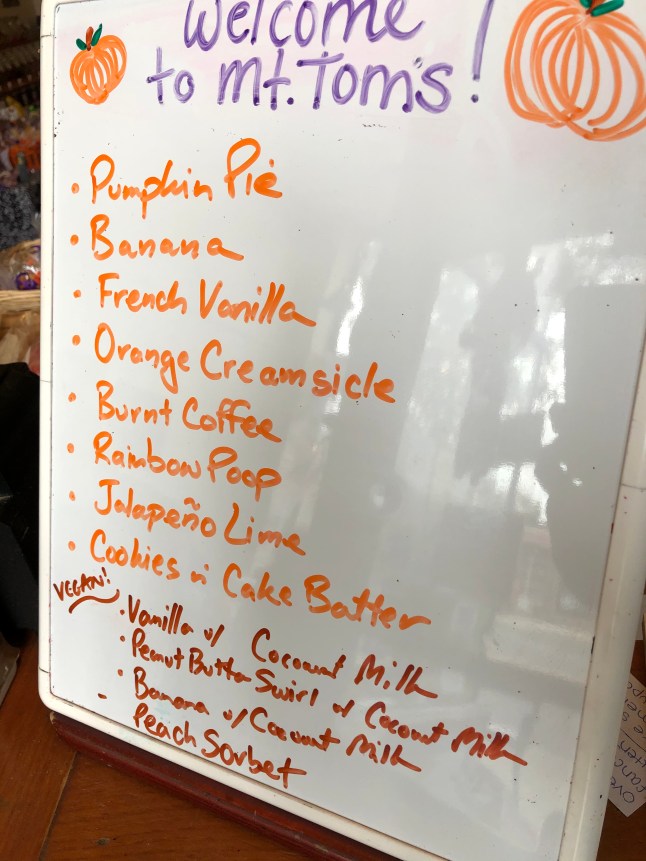 Welcome
to Mt. Tom's!
• Pumpkin Pie
• Banana
• French Vanilla
• Orange Creamsicle
• Burnt Coffee
• Rainbow Poop
• Jalapeño Lime
• Cookies n' Cake Batter
VEGAN!
• Vanilla w/ Coconut Milk
• Peanut Butter Swirl w/ Coconut Milk
• Banana w/ Coconut Milk
- Peach Sorbet